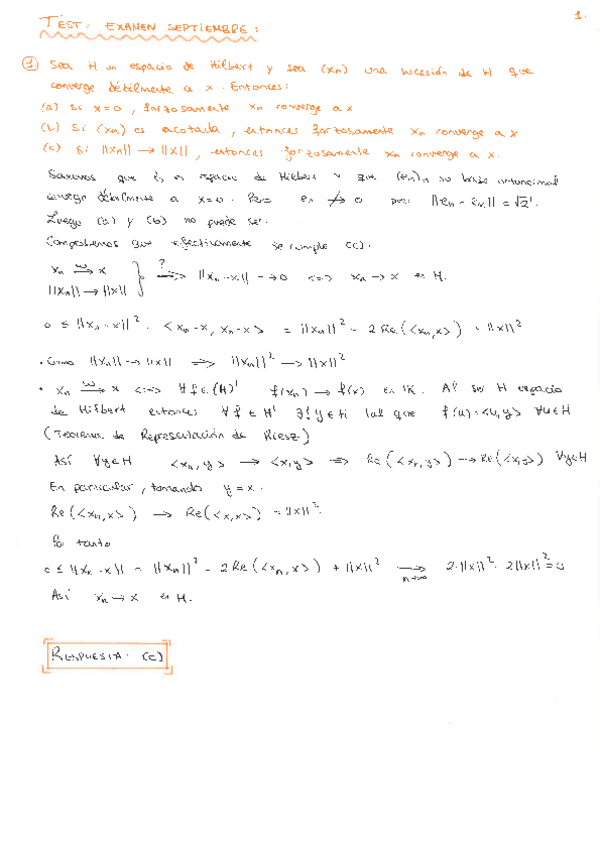 1.
TEST: EXAMEN SEPTIEMBRE:
① Sea H un espacio de Hilbert y sea (xn) una sucesión de H que
converge débilmente a x. Entonces:
(a) Si x=0, forzosamente xn converge a x
(b) Si (xn) es acotada, entonces forzosamente xn converge a x
(c) Si ||xn|| → ||x||, entonces forzosamente xn converge a x.
Sabemos que l2 es espacio de Hilbert y que (en)n su base ortonormal
converge débilmente a x=0. Pero en ↛ 0 pues ||en - em|| = √2.
Luego (a) y (b) no puede ser.
Comprobemos que efectivamente se cumple (c).
xn →w x
||xn|| → ||x|| } ?⟹ ||xn - x|| → 0 <=> xn → x en H.
0 ≤ ||xn - x||² = <xn - x, xn - x> = ||xn||² - 2 Re(<xn,x>) + ||x||²
• Como ||xn|| → ||x|| ⟹ ||xn||² → ||x||²
• xn →w x <=> ∀f∈(H)' f(xn) → f(x) en K. Al ser H espacio
de Hilbert entonces ∀f∈H' ∃! y∈H tal que f(u)=<u,y> ∀u∈H
(Teorema de Representación de Riesz)
Así ∀y∈H <xn,y> → <x,y> ⟹ Re(<xn,y>) → Re(<x,y>) ∀y∈H
En particular, tomando y=x.
Re(<xn,x>) → Re(<x,x>) = ||x||².
Por tanto
0 ≤ ||xn - x||² = ||xn||² - 2Re(<xn,x>) + ||x||² →n→∞ 2·||x||² - 2||x||² = 0
Así xn → x en H.
RESPUESTA: (c)